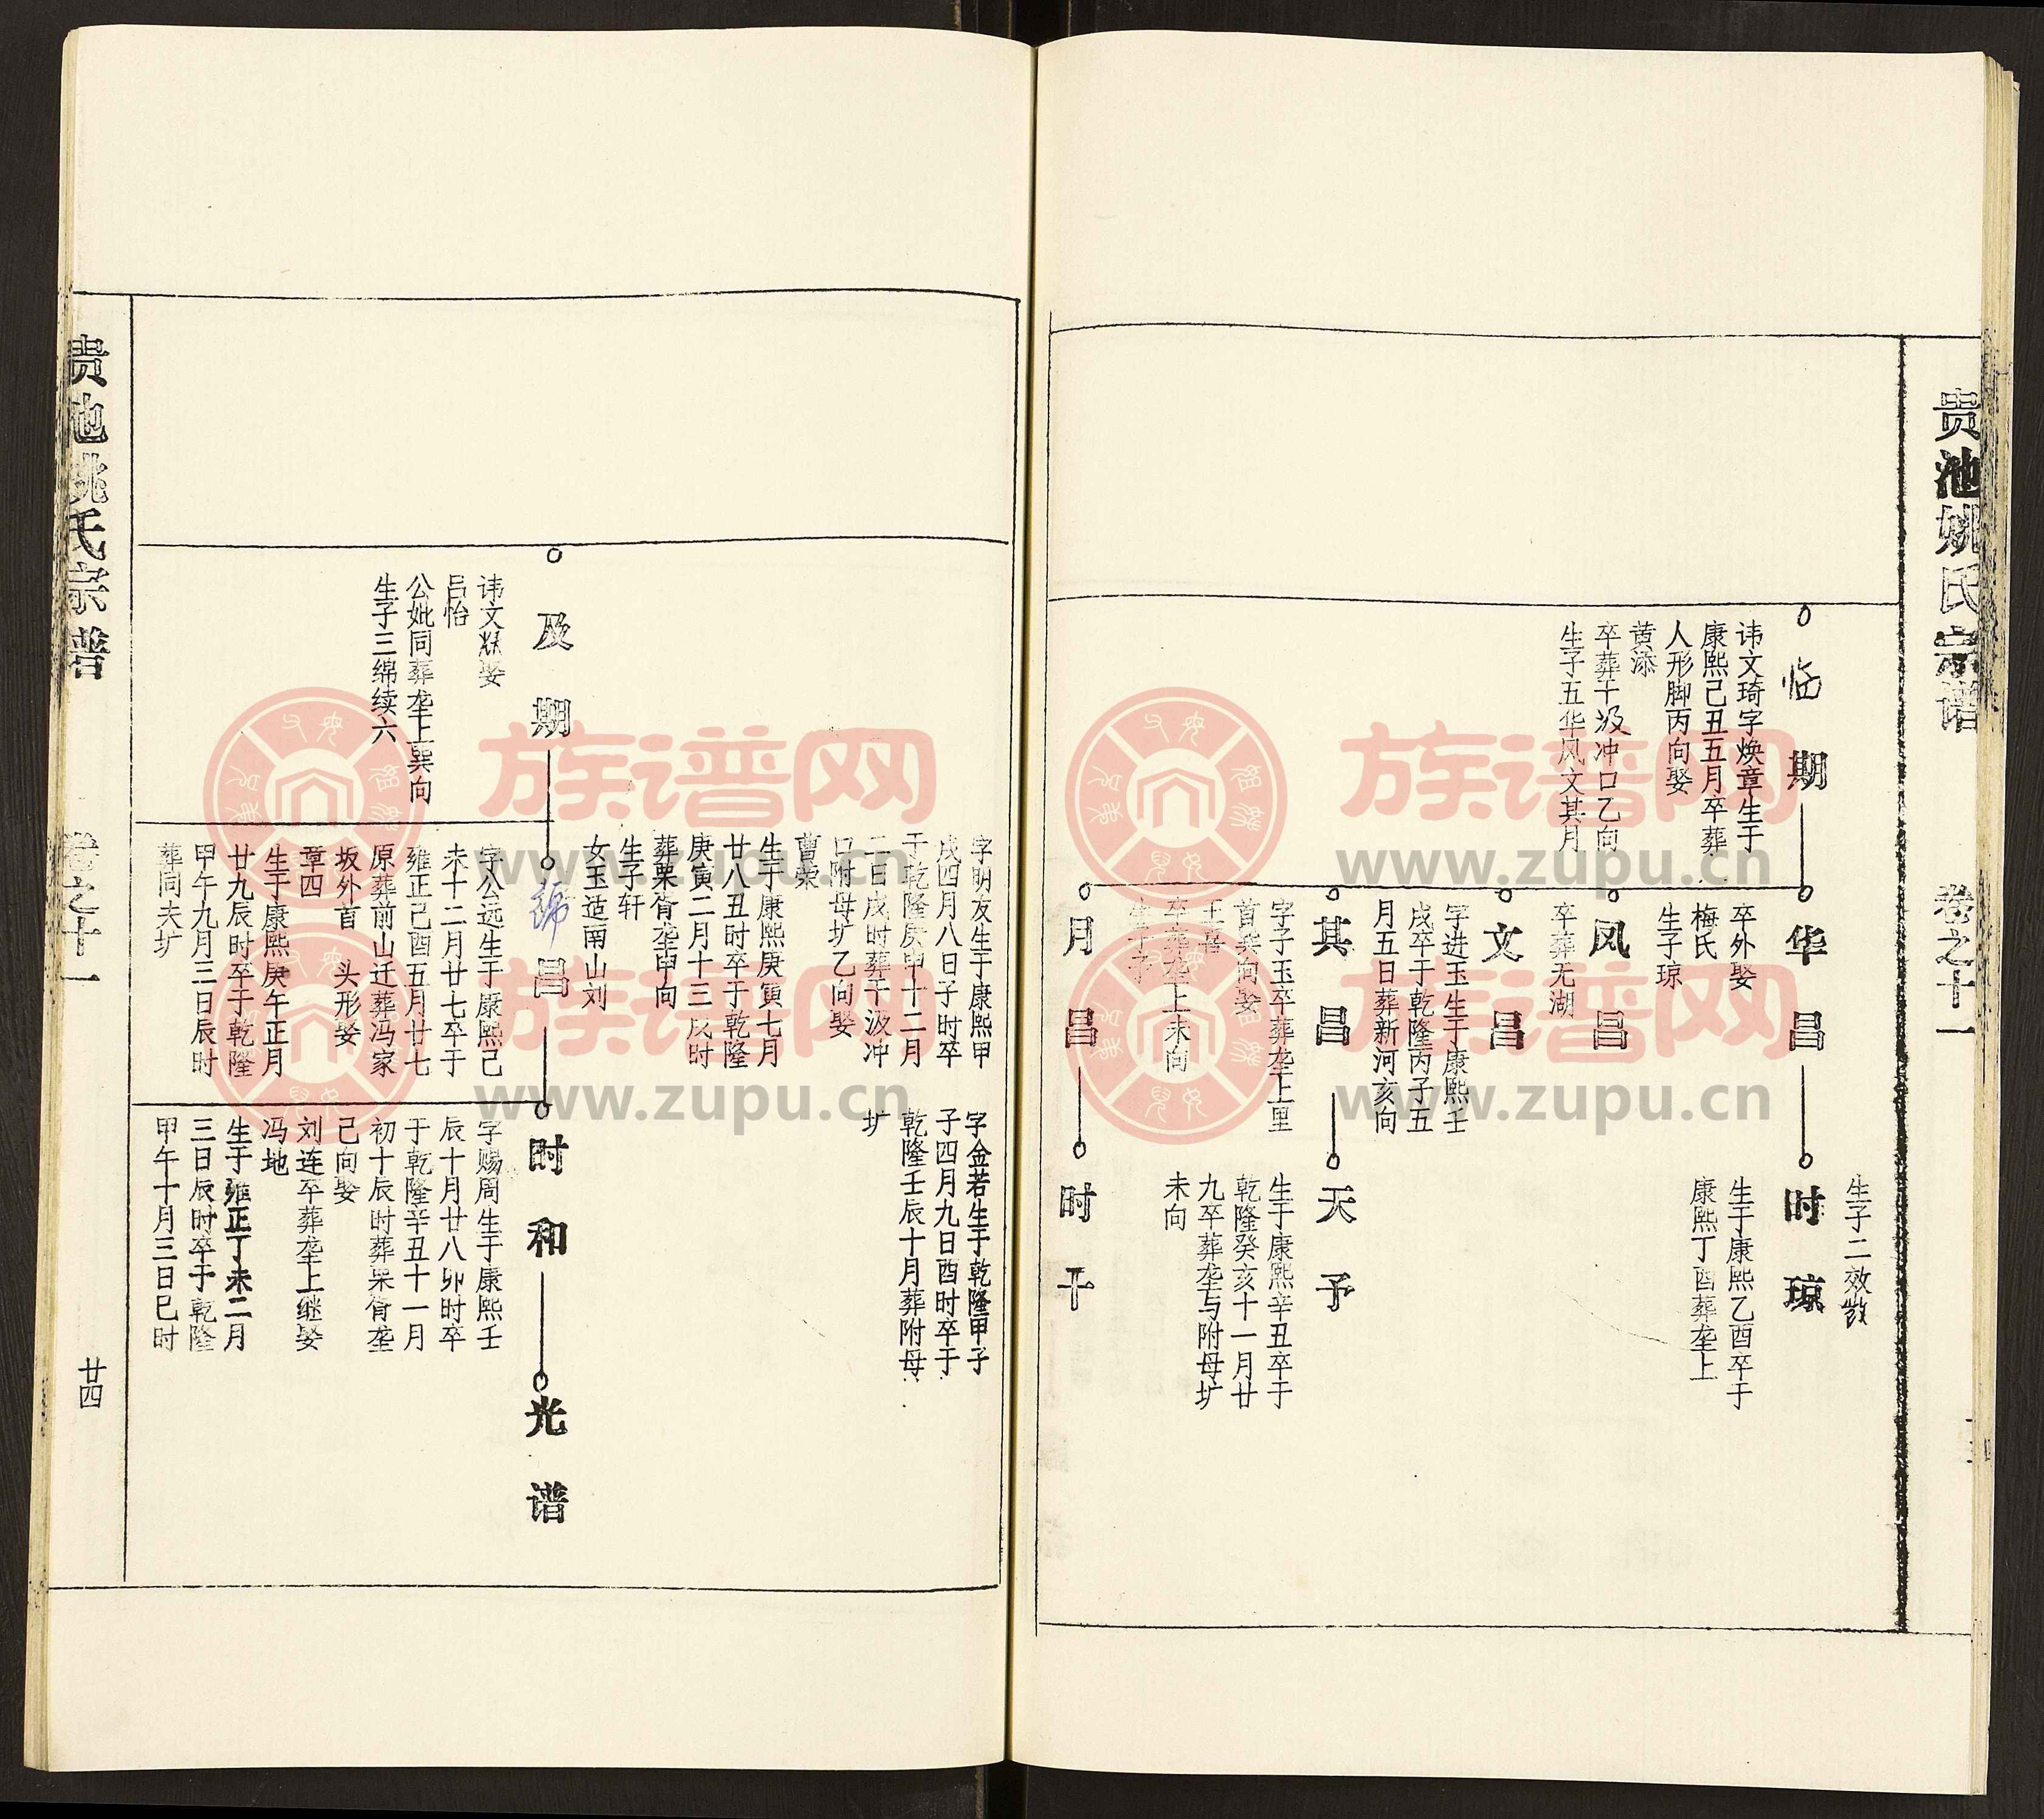 贵池姚氏宗谱
卷之十一
生子二效
临期
讳文琦字焕章生于
康熙己丑五月卒葬
人形脚丙向娶
黄添
卒葬干圾冲口乙向
生子五华风文其月
华昌
卒外娶
梅氏
生子琼
时琼
生于康熙乙酉卒于
康熙丁酉葬垄上
凤昌
卒葬无湖
文昌
字进玉生于康熙壬
戌卒于乾隆丙子五
月五日葬新河亥向
其昌
字子玉卒葬垄上里
首癸向娶
王喜
卒葬垄上未向
生子予
天予
生于康熙辛丑卒于
乾隆癸亥十一月廿
九卒葬垄与附母圹
未向
月昌
时干
字明友生于康熙甲
戌四月八日子时卒
于乾隆庚申十二月
二日戌时葬干汲冲
口附母圹乙向娶
曹荣
生于康熙庚寅七月
廿八丑时卒于乾隆
庚寅二月十三戌时
葬栗胥垄申向
生子轩
女玉适南山刘
字金若生于乾隆甲子
子四月九日酉时卒于
乾隆壬辰十月葬附母
圹
及期
讳文 娶
吕怡
公妣同葬垄上巽向
生子三绵续六
昌
字公远生于康熙己
未十二月廿七卒于
雍正己酉五月廿七
原葬前山迁葬冯家
坂外首 头形娶
章四
生于康熙庚午正月
廿九辰时卒于乾隆
甲午九月三日辰时
葬同夫圹
时和
字赐周生于康熙壬
辰十月廿八卯时卒
于乾隆辛丑十一月
初十辰时葬栗胥垄
己向娶
刘连卒葬垄上继娶
冯地
生于雍正丁未二月
三日辰时卒于乾隆
甲午十月三日巳时
光谱
贵池姚氏宗谱
卷之十一
廿四
族谱网
www.zupu.cn
族谱网
www.zupu.cn
族谱网
www.zupu.cn
族谱网
www.zupu.cn